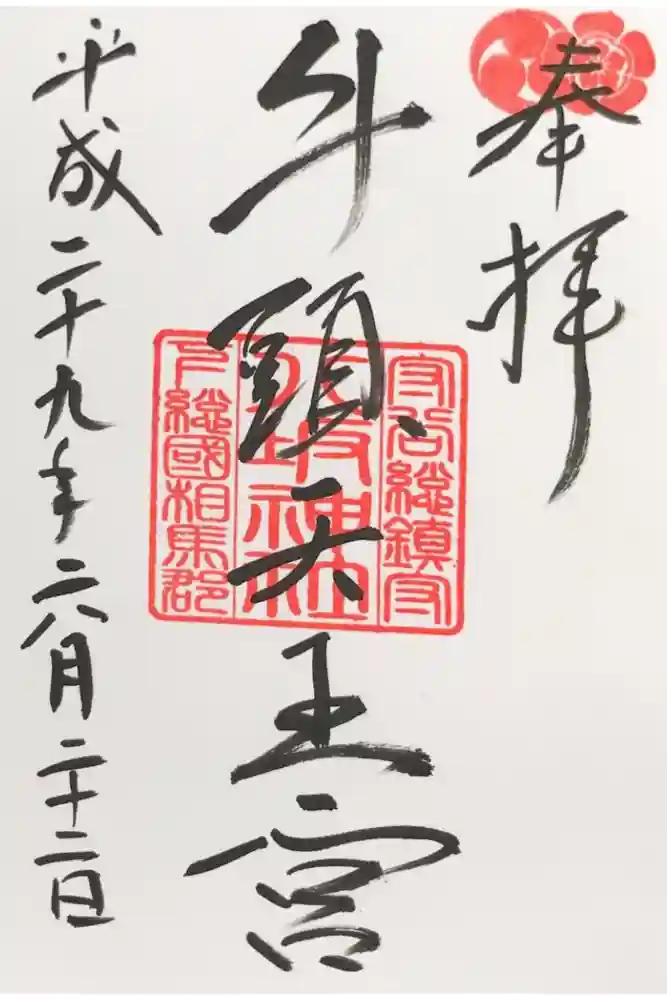 奉拝
守谷総鎮守
牛頭天王宮
八坂神社
下総國相馬郡
平成二十九年六月二十二日